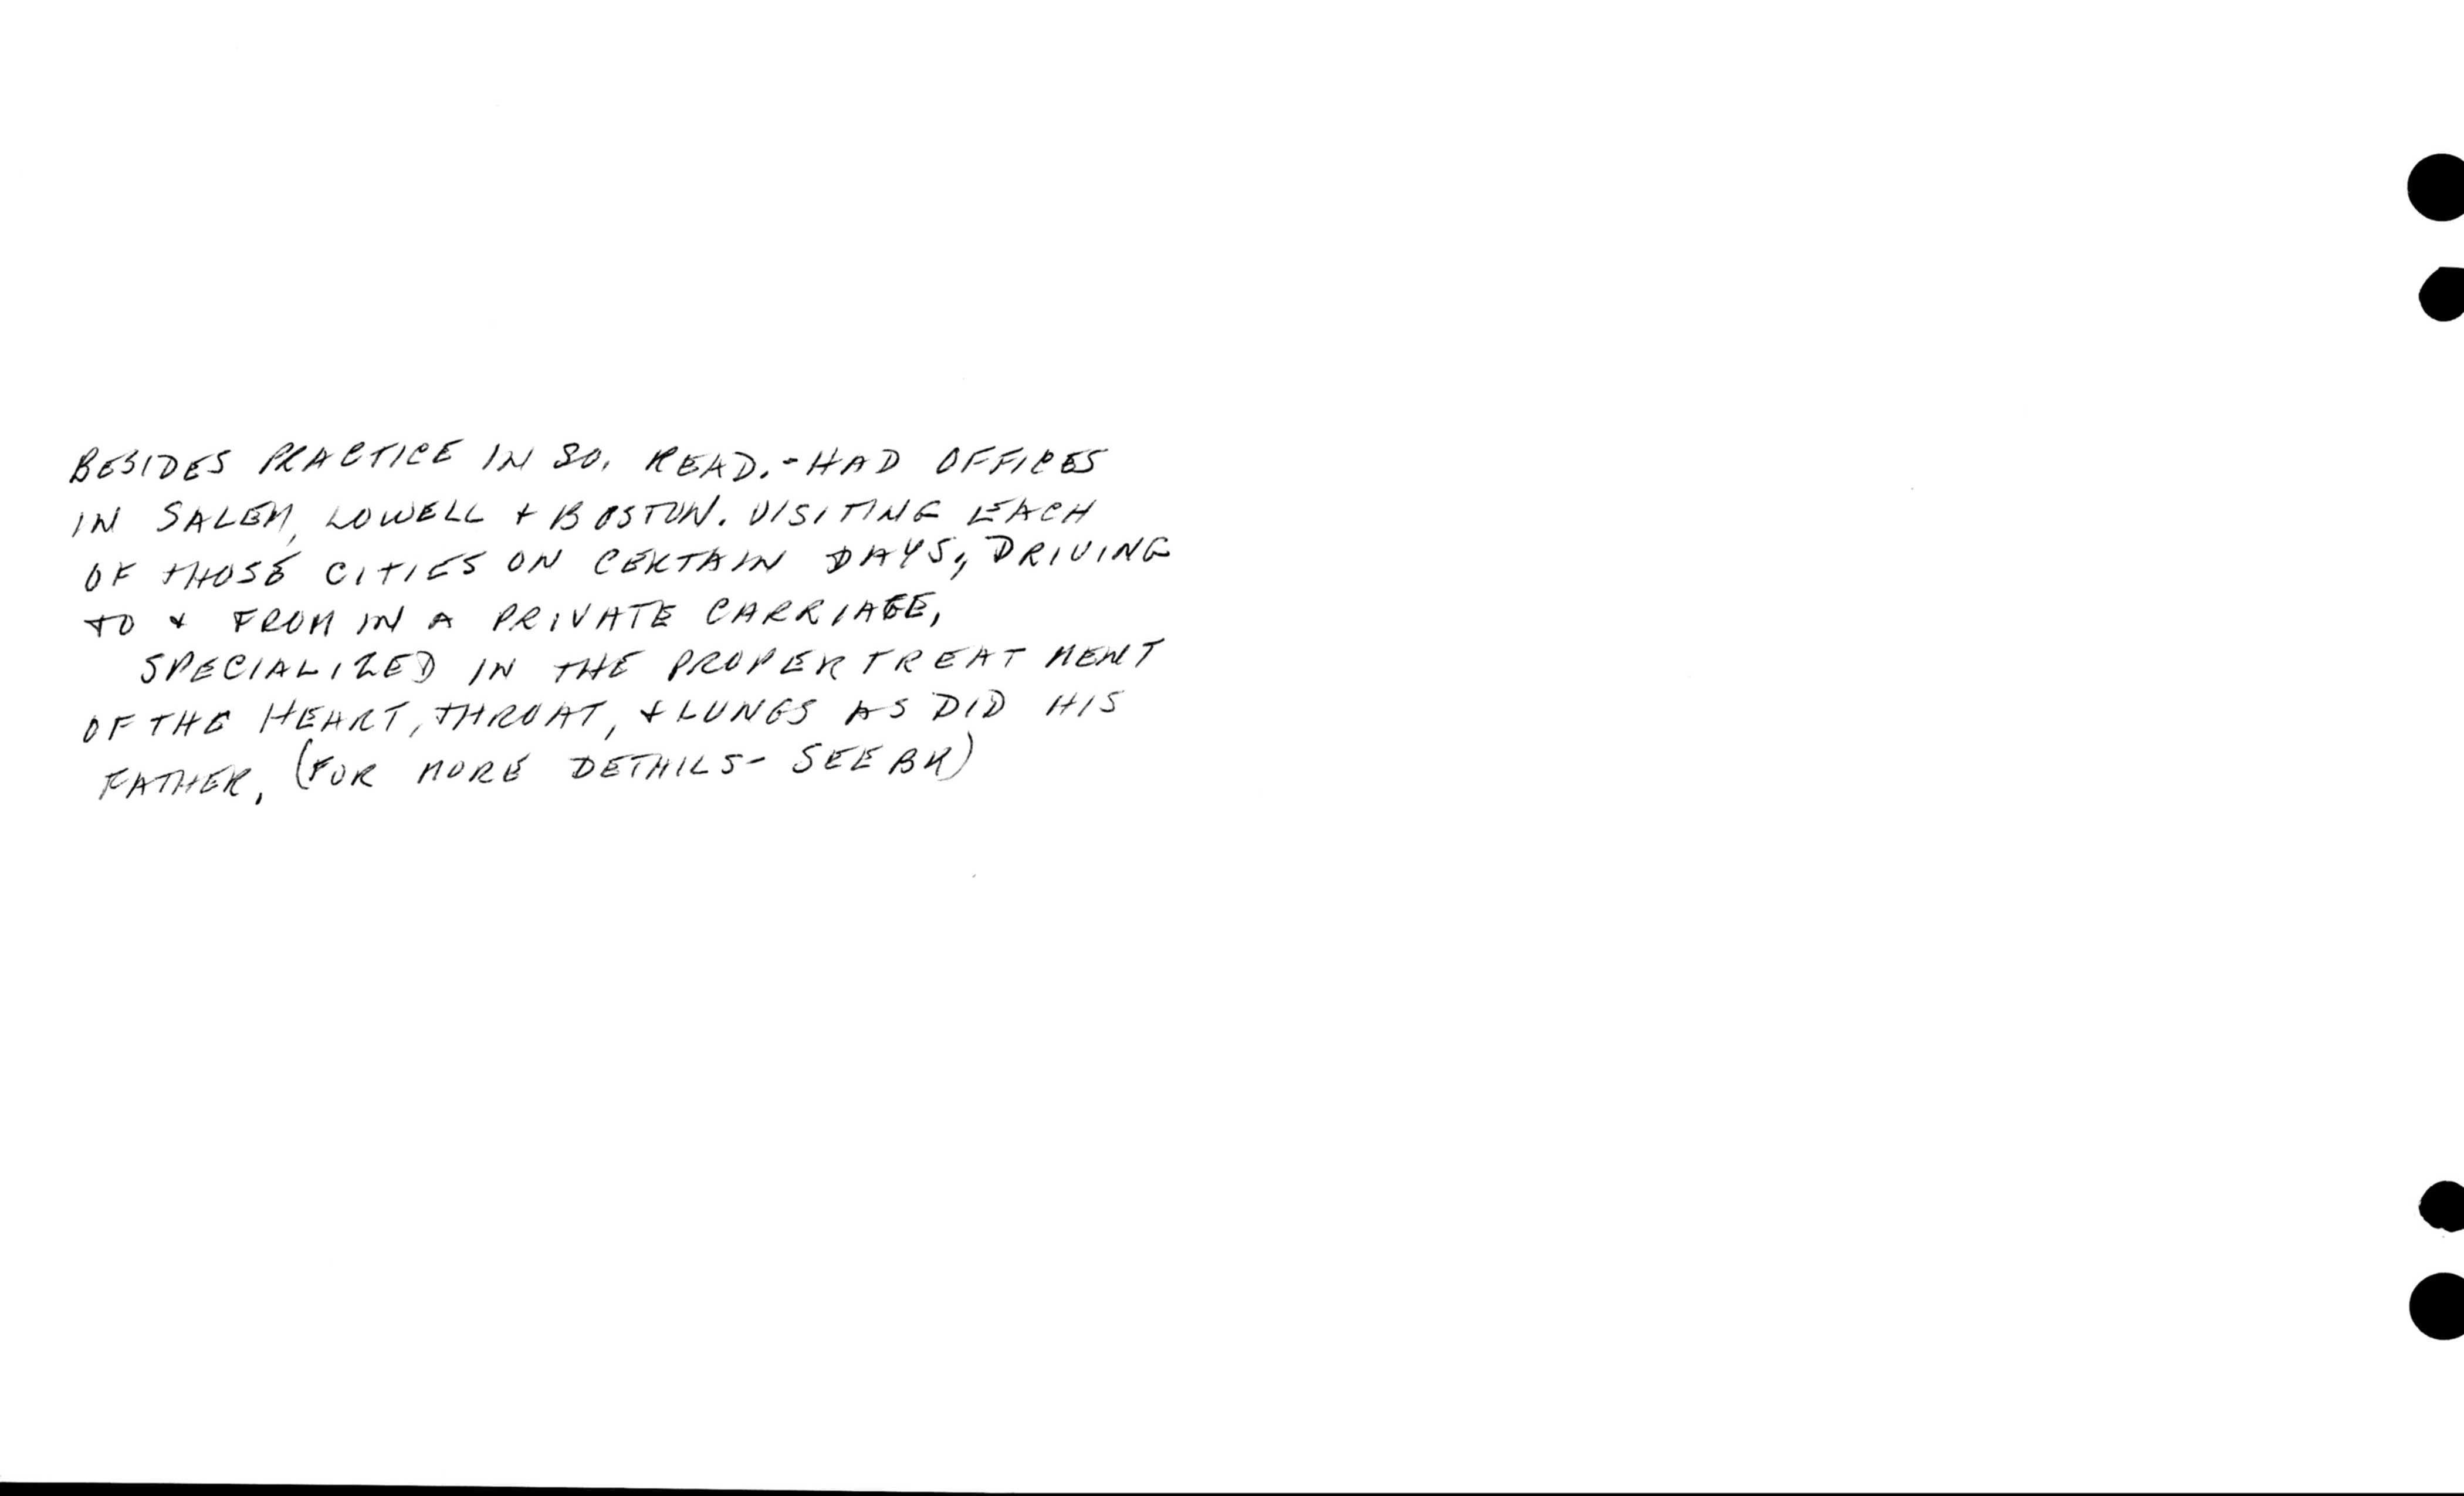 BESIDES PRACTICE IN SO. READ. - HAD OFFICES
IN SALEM, LOWELL + BOSTON. VISITING EACH
OF THOSE CITIES ON CERTAIN DAYS, DRIVING
TO + FROM IN A PRIVATE CARRIAGE,
SPECIALIZED IN THE PROPER TREATMENT
OF THE HEART, THROAT, + LUNGS AS DID HIS
FATHER. (FOR MORE DETAILS - SEE BK)